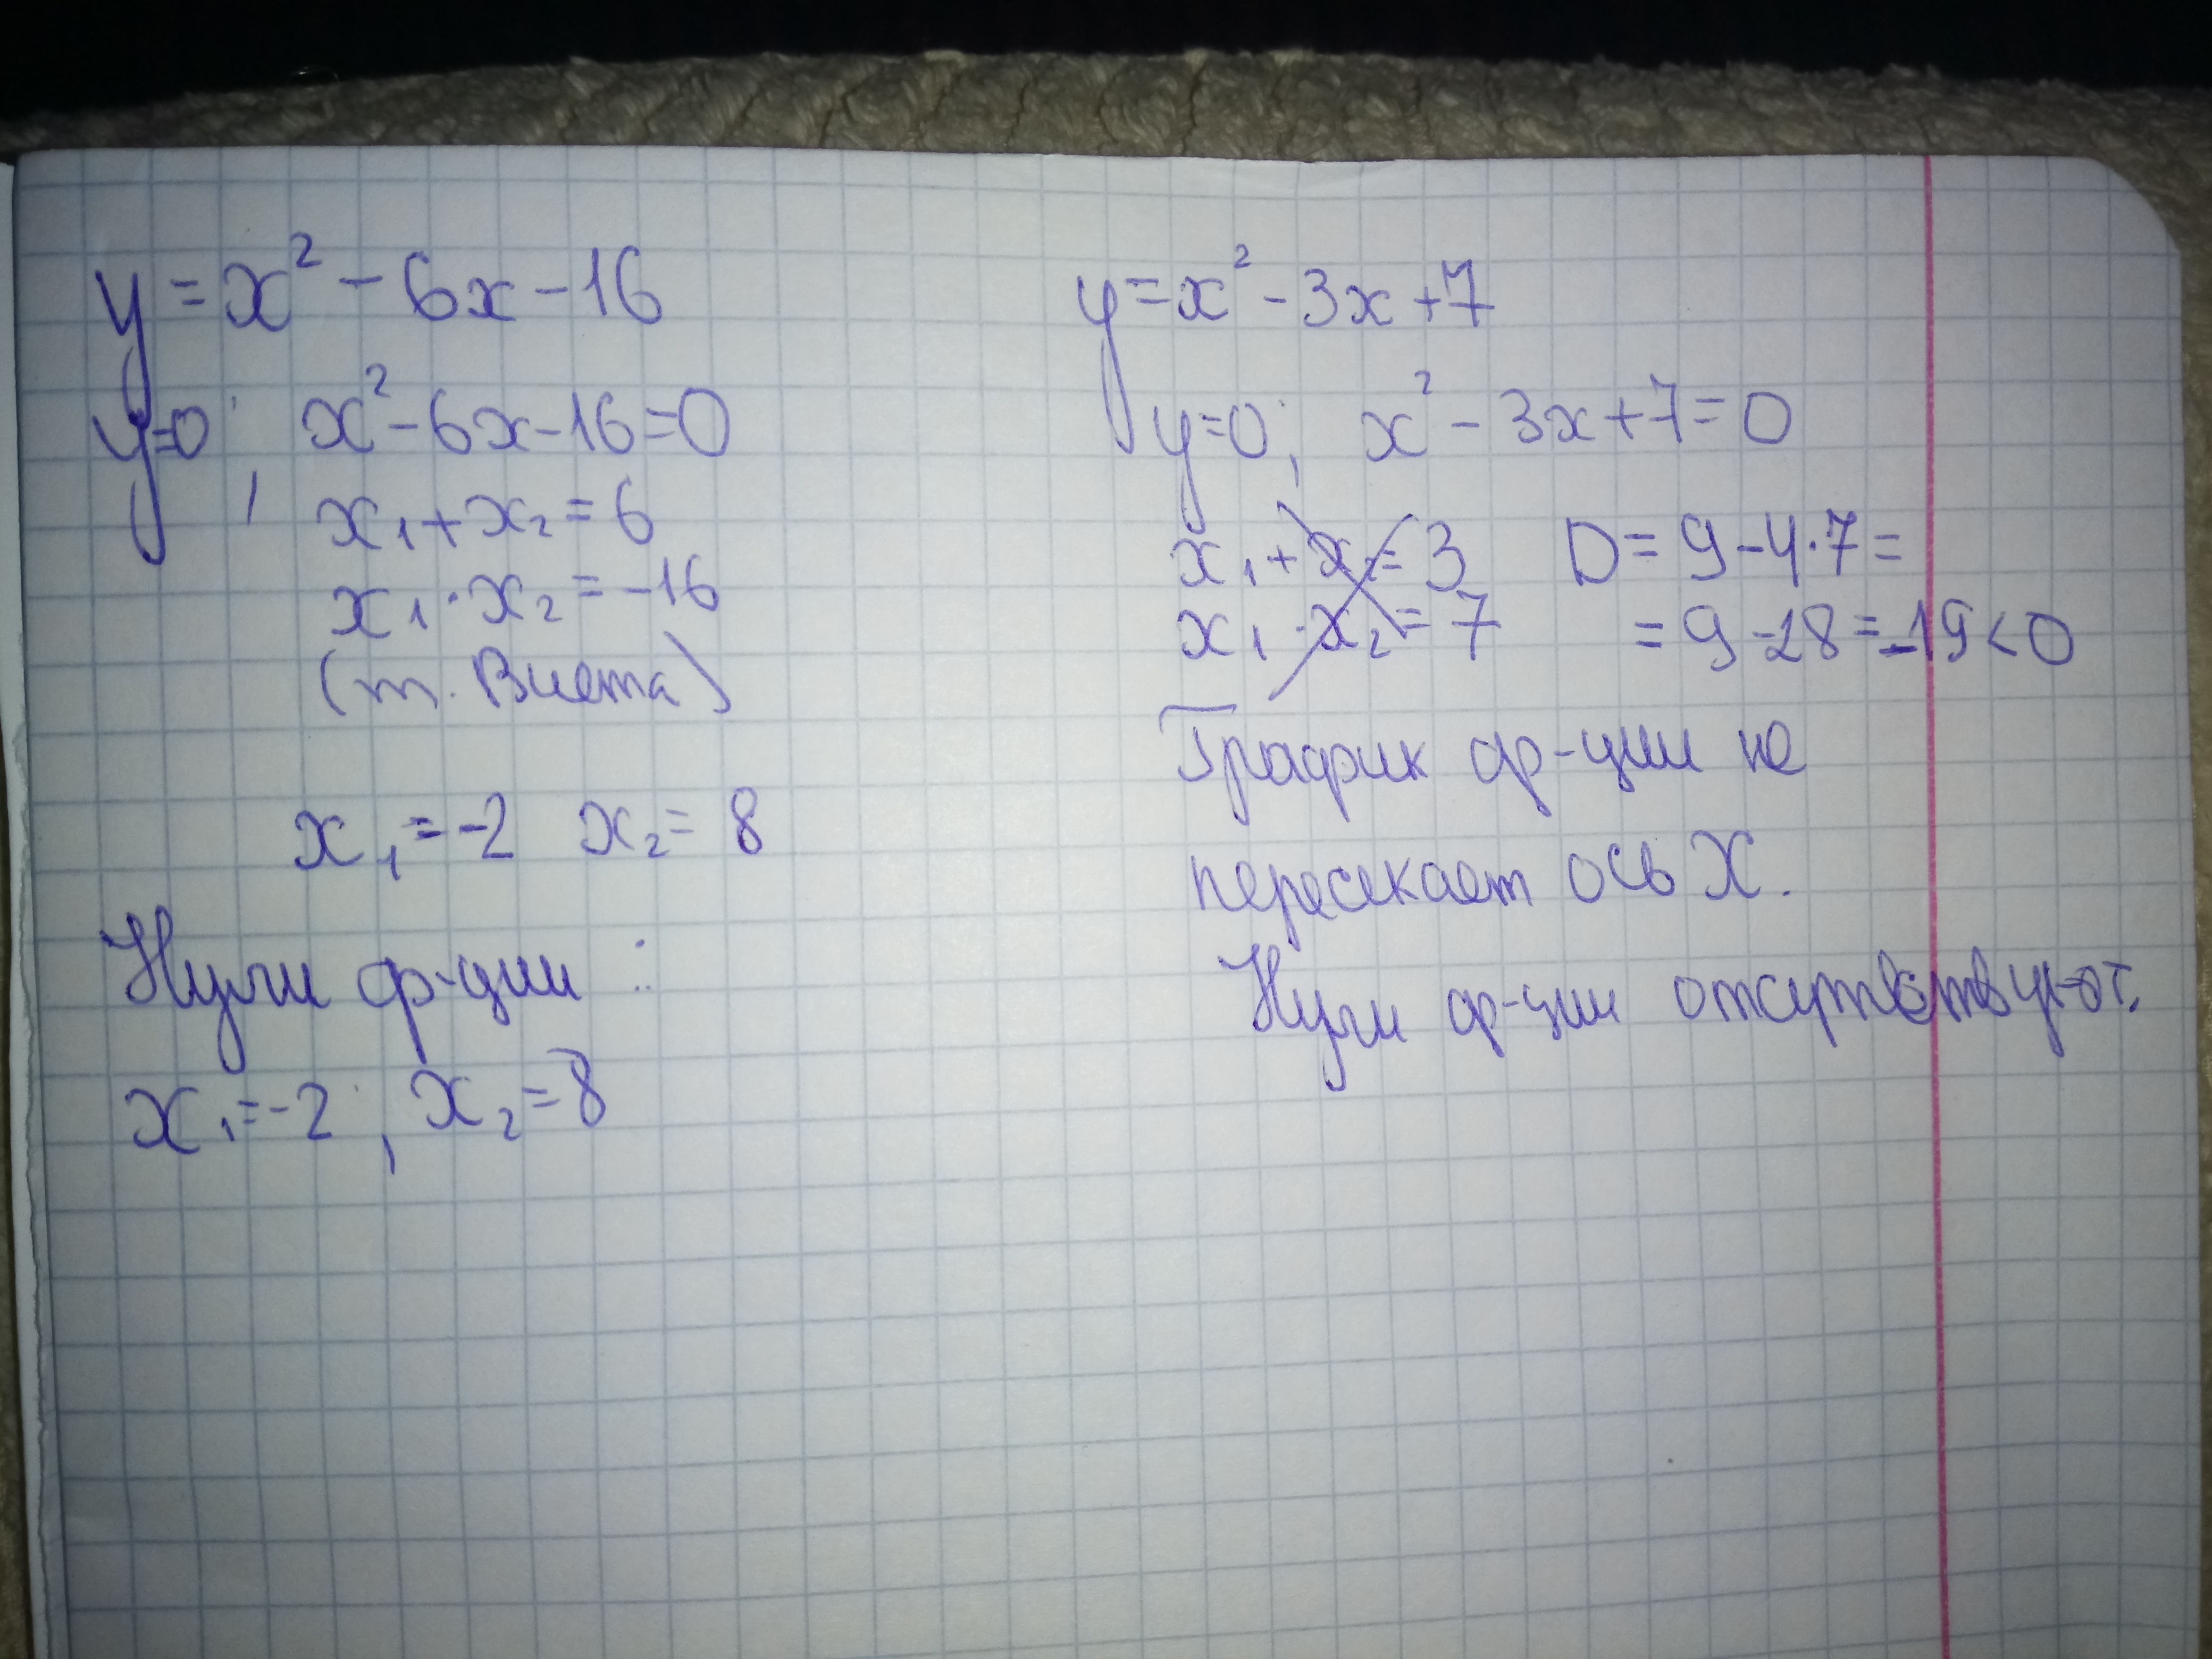 y = x² - 6x - 16
y=0; x² - 6x - 16 = 0
x₁ + x₂ = 6
x₁ · x₂ = -16
(т. Виета)
x₁ = -2 x₂ = 8
Нули ф-ции :
x₁ = -2 ; x₂ = 8
y = x² - 3x + 7
y=0; x² - 3x + 7 = 0
x₁ + x₂ = 3 D = 9 - 4·7 =
x₁ · x₂ = 7 = 9 - 28 = -19 < 0
График ф-ции не
пересекает ось X.
Нули ф-ции отсутствуют.